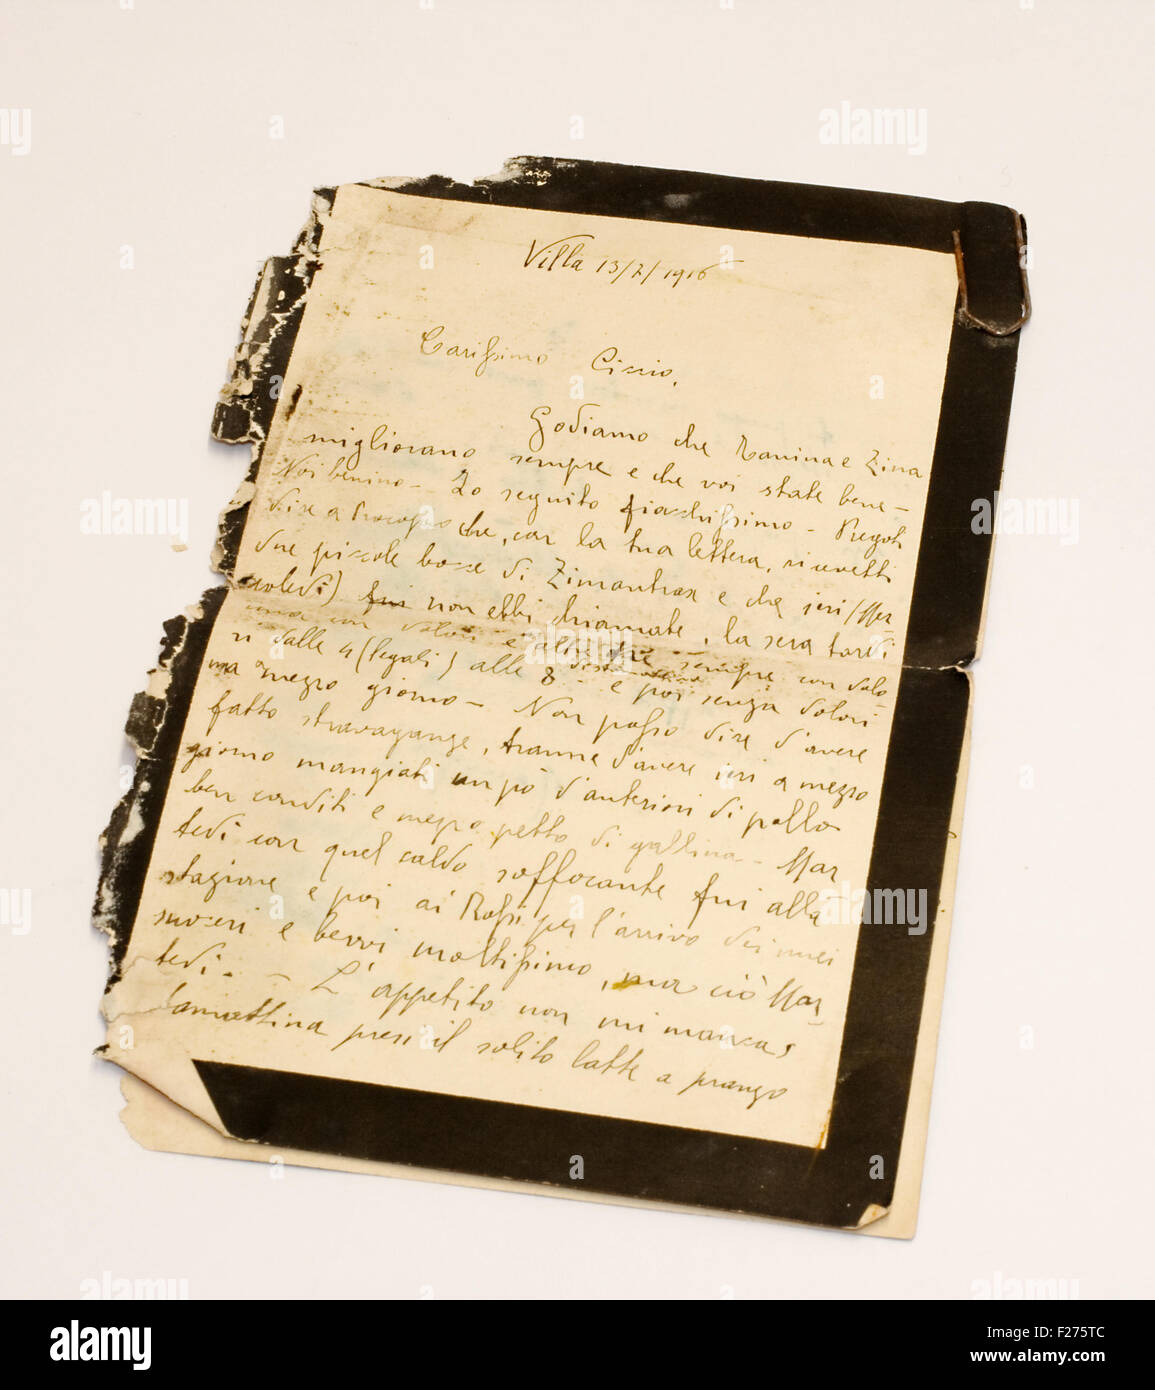 Villa 13/7/1916
Carissimo Ciccio,
Godiamo che Nanina e Zina
migliorano sempre e che voi state bene -
Noi benino - Io seguito fiacchissimo - Pregoti
dire a Procopio che, con la tua lettera, ricevetti
due piccole bocce di Zimantrax e che ieri (Mer-
coledì) fui non ebbi chiamate, la sera tardi
una con dolori e altre tre sempre con dolo-
ri dalle 4 (legali) alle 8 - e poi senza dolori
ma mezzo giorno - Non posso dire d'avere
fatto stravaganze, tranne d'avere ieri a mezzo
giorno mangiati un pò d'anteriori di pollo
ben conditi e mezzo petto di gallina - Mar
tedì con quel caldo soffocante fui alla
stazione e poi ai Rossi per l'arrivo dei miei
suoceri e bevvi moltissimo, ma ciò Mar-
tedì. - L'appetito non mi manca,
Stamattina presi il solito latte a pranzo
alamy
alamy
Image ID: F275TC
www.alamy.com